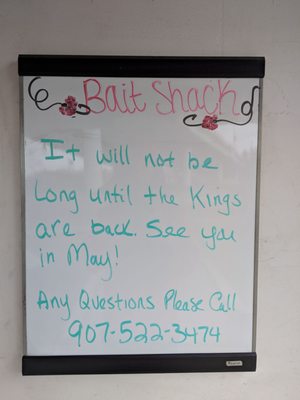 Bait Shack
It will not be
Long until the Kings
are back. See you
in May!
Any Questions Please Call
907-522-3474